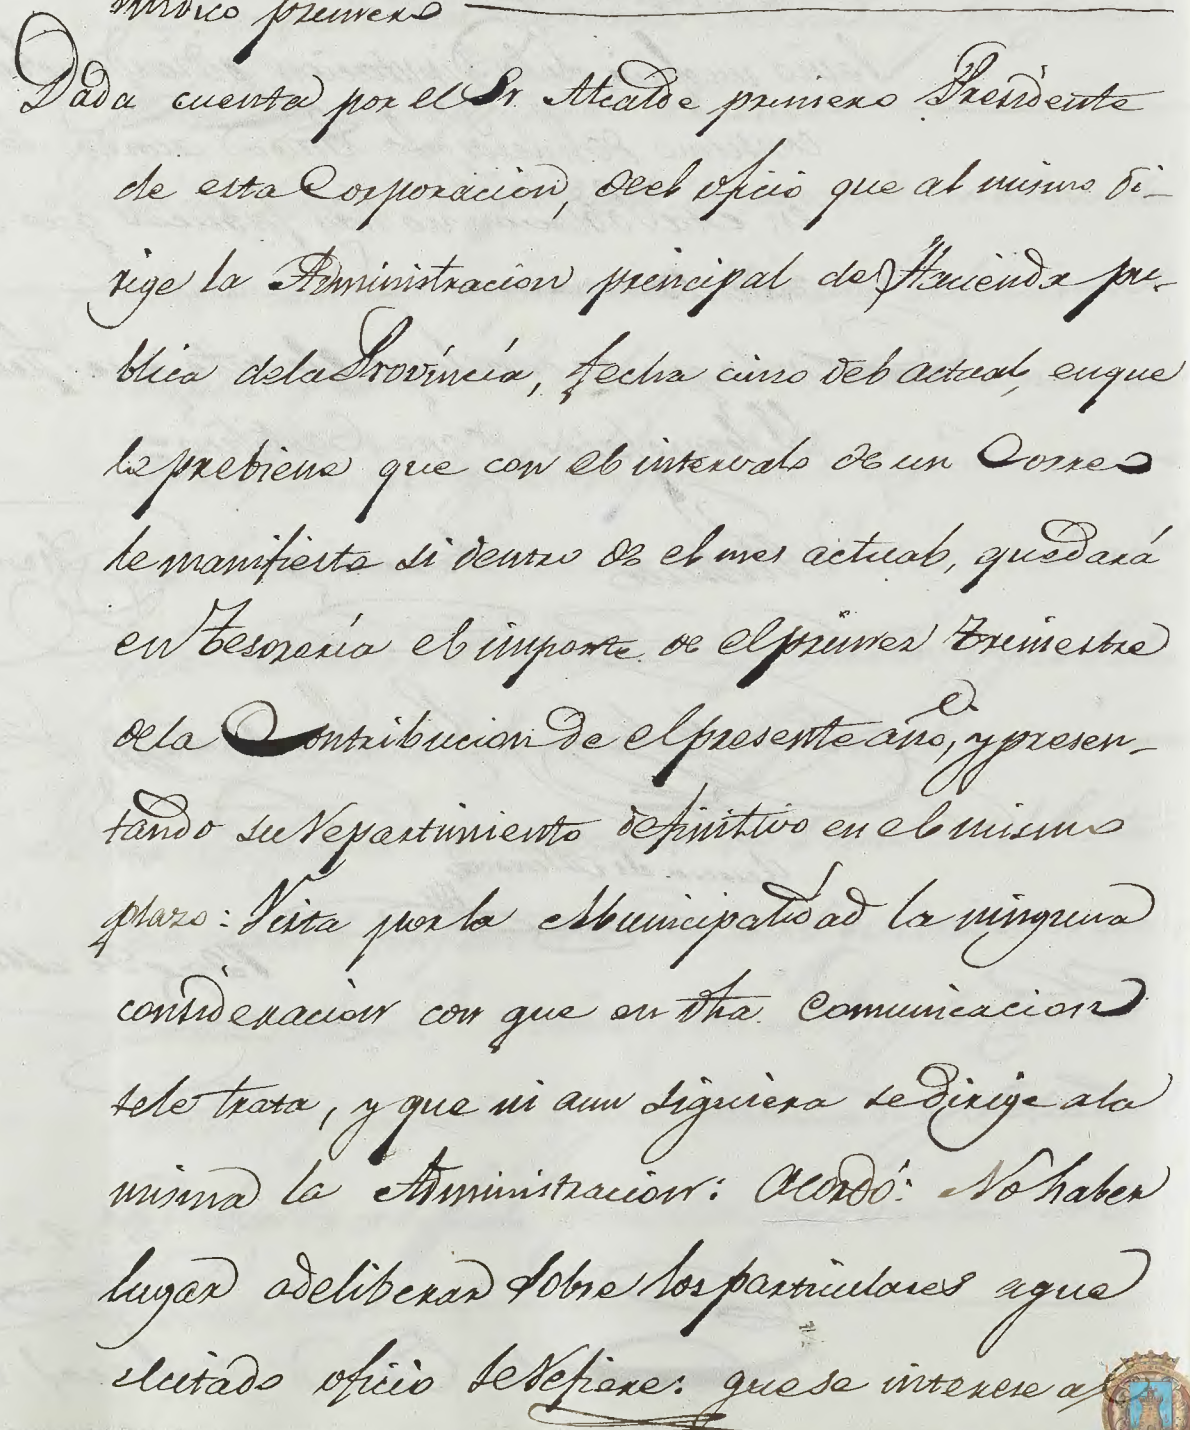 Síndico primero
Dada cuenta por el Sr. Alcalde primero Presidente
de esta Corporacion, deel oficio que al mismo di-
rige la Administracion principal de Hacienda pu-
blica dela Provincia, fecha cinco del actual, enque
le prebiene que con el intervalo de un Correo
le manifieste si dentro de el mes actual, quedará
en Tesoreria el importe de elprimer trimestre
dela Contribucion de elpresente año, y presen-
tando su Repartimiento definitivo en el mismo
plazo: Vista por la Municipalidad la ninguna
consideracion con que en dha. Comunicacion
sele trata, y que ni aun siguiera se dirige ala
misma la Administracion: Acordó: No haber
lugar adeliberar sobre los particulares aque
elcitado oficio se refiere: que se interese a